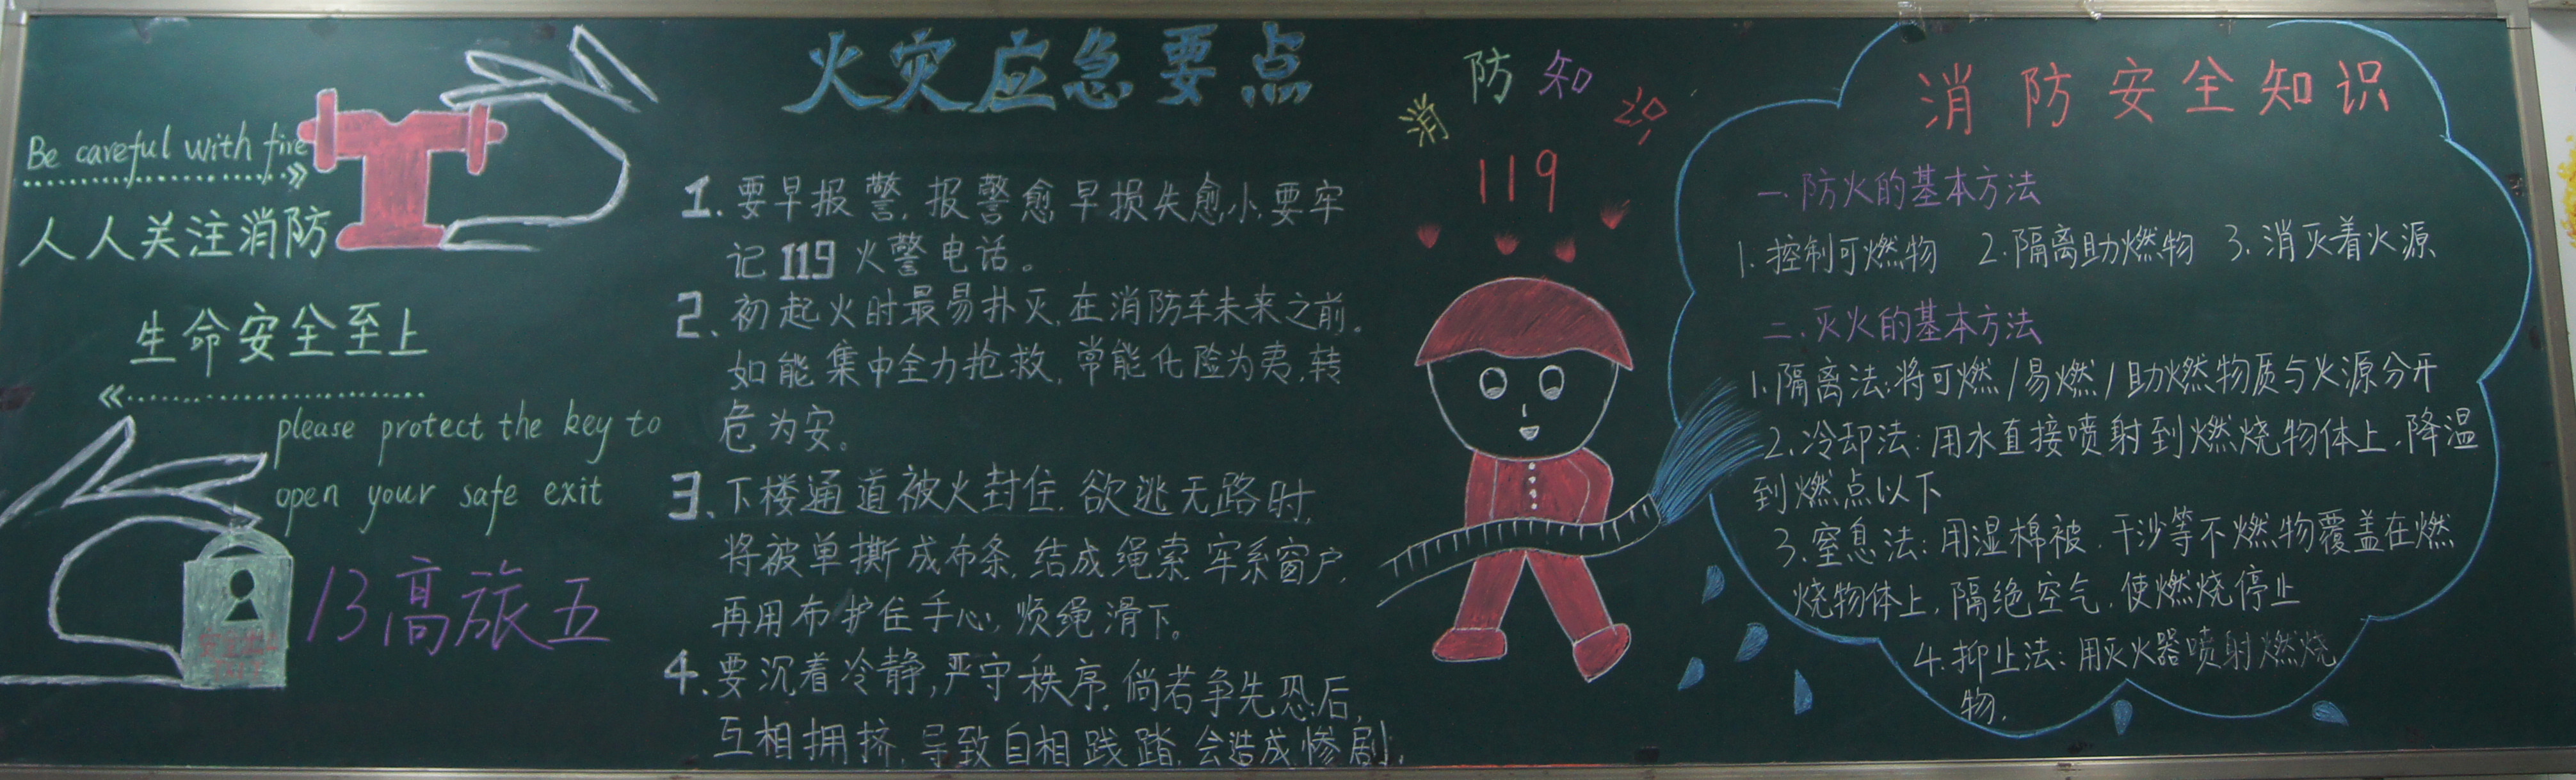 Be careful with fire
人人关注消防
生命安全至上
please protect the key to
open your safe exit
13高旅五
火灾应急要点
1.要早报警,报警愈早损失愈小,要牢
记119火警电话。
2.初起火时最易扑灭,在消防车未来之前。
如能集中全力抢救,常能化险为夷,转
危为安。
3.下楼通道被火封住,欲逃无路时,
将被单撕成布条,结成绳索,牢系窗户,
再用布护住手心,顺绳滑下。
4.要沉着冷静,严守秩序,倘若争先恐后,
互相拥挤,导致自相践踏,会造成惨剧.
消防知识
119
消防安全知识
一.防火的基本方法
1.控制可燃物 2.隔离助燃物 3.消灭着火源
二.灭火的基本方法
1.隔离法:将可燃/易燃/助燃物质与火源分开
2.冷却法:用水直接喷射到燃烧物体上,降温
到燃点以下
3.窒息法:用湿棉被,干沙等不燃物覆盖在燃
烧物体上,隔绝空气,使燃烧停止
4.抑止法:用灭火器喷射燃烧
物.